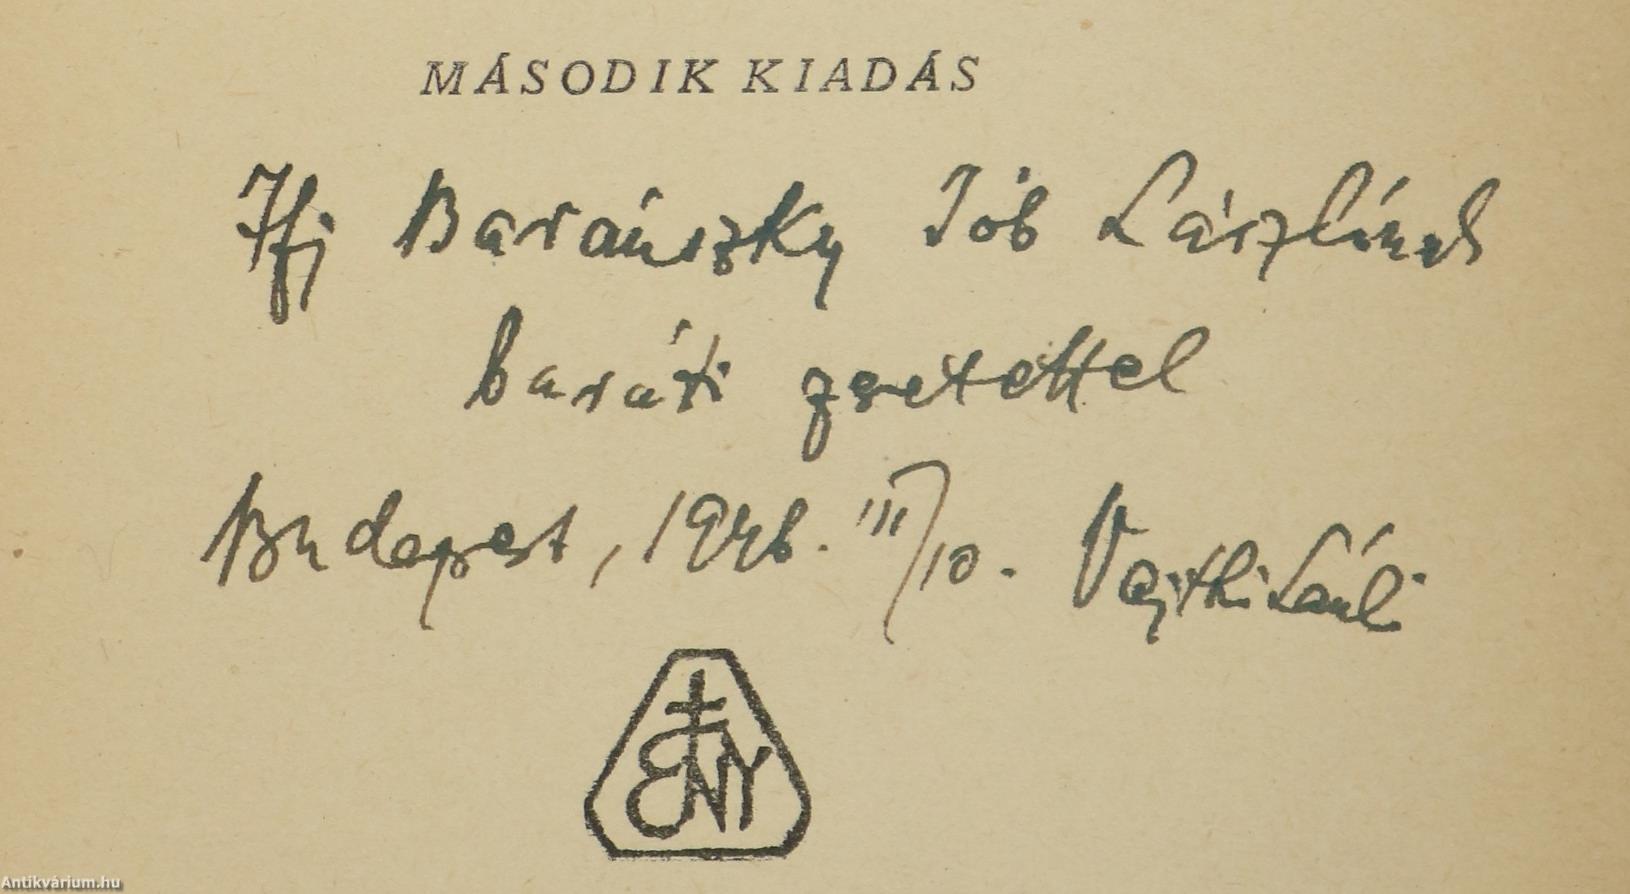 MÁSODIK KIADÁS
Ifj Baránszky Jób Lászlónak
baráti szeretettel
Budapest, 1948. III/10. Vajthó László
ENY
Antikvárium.hu